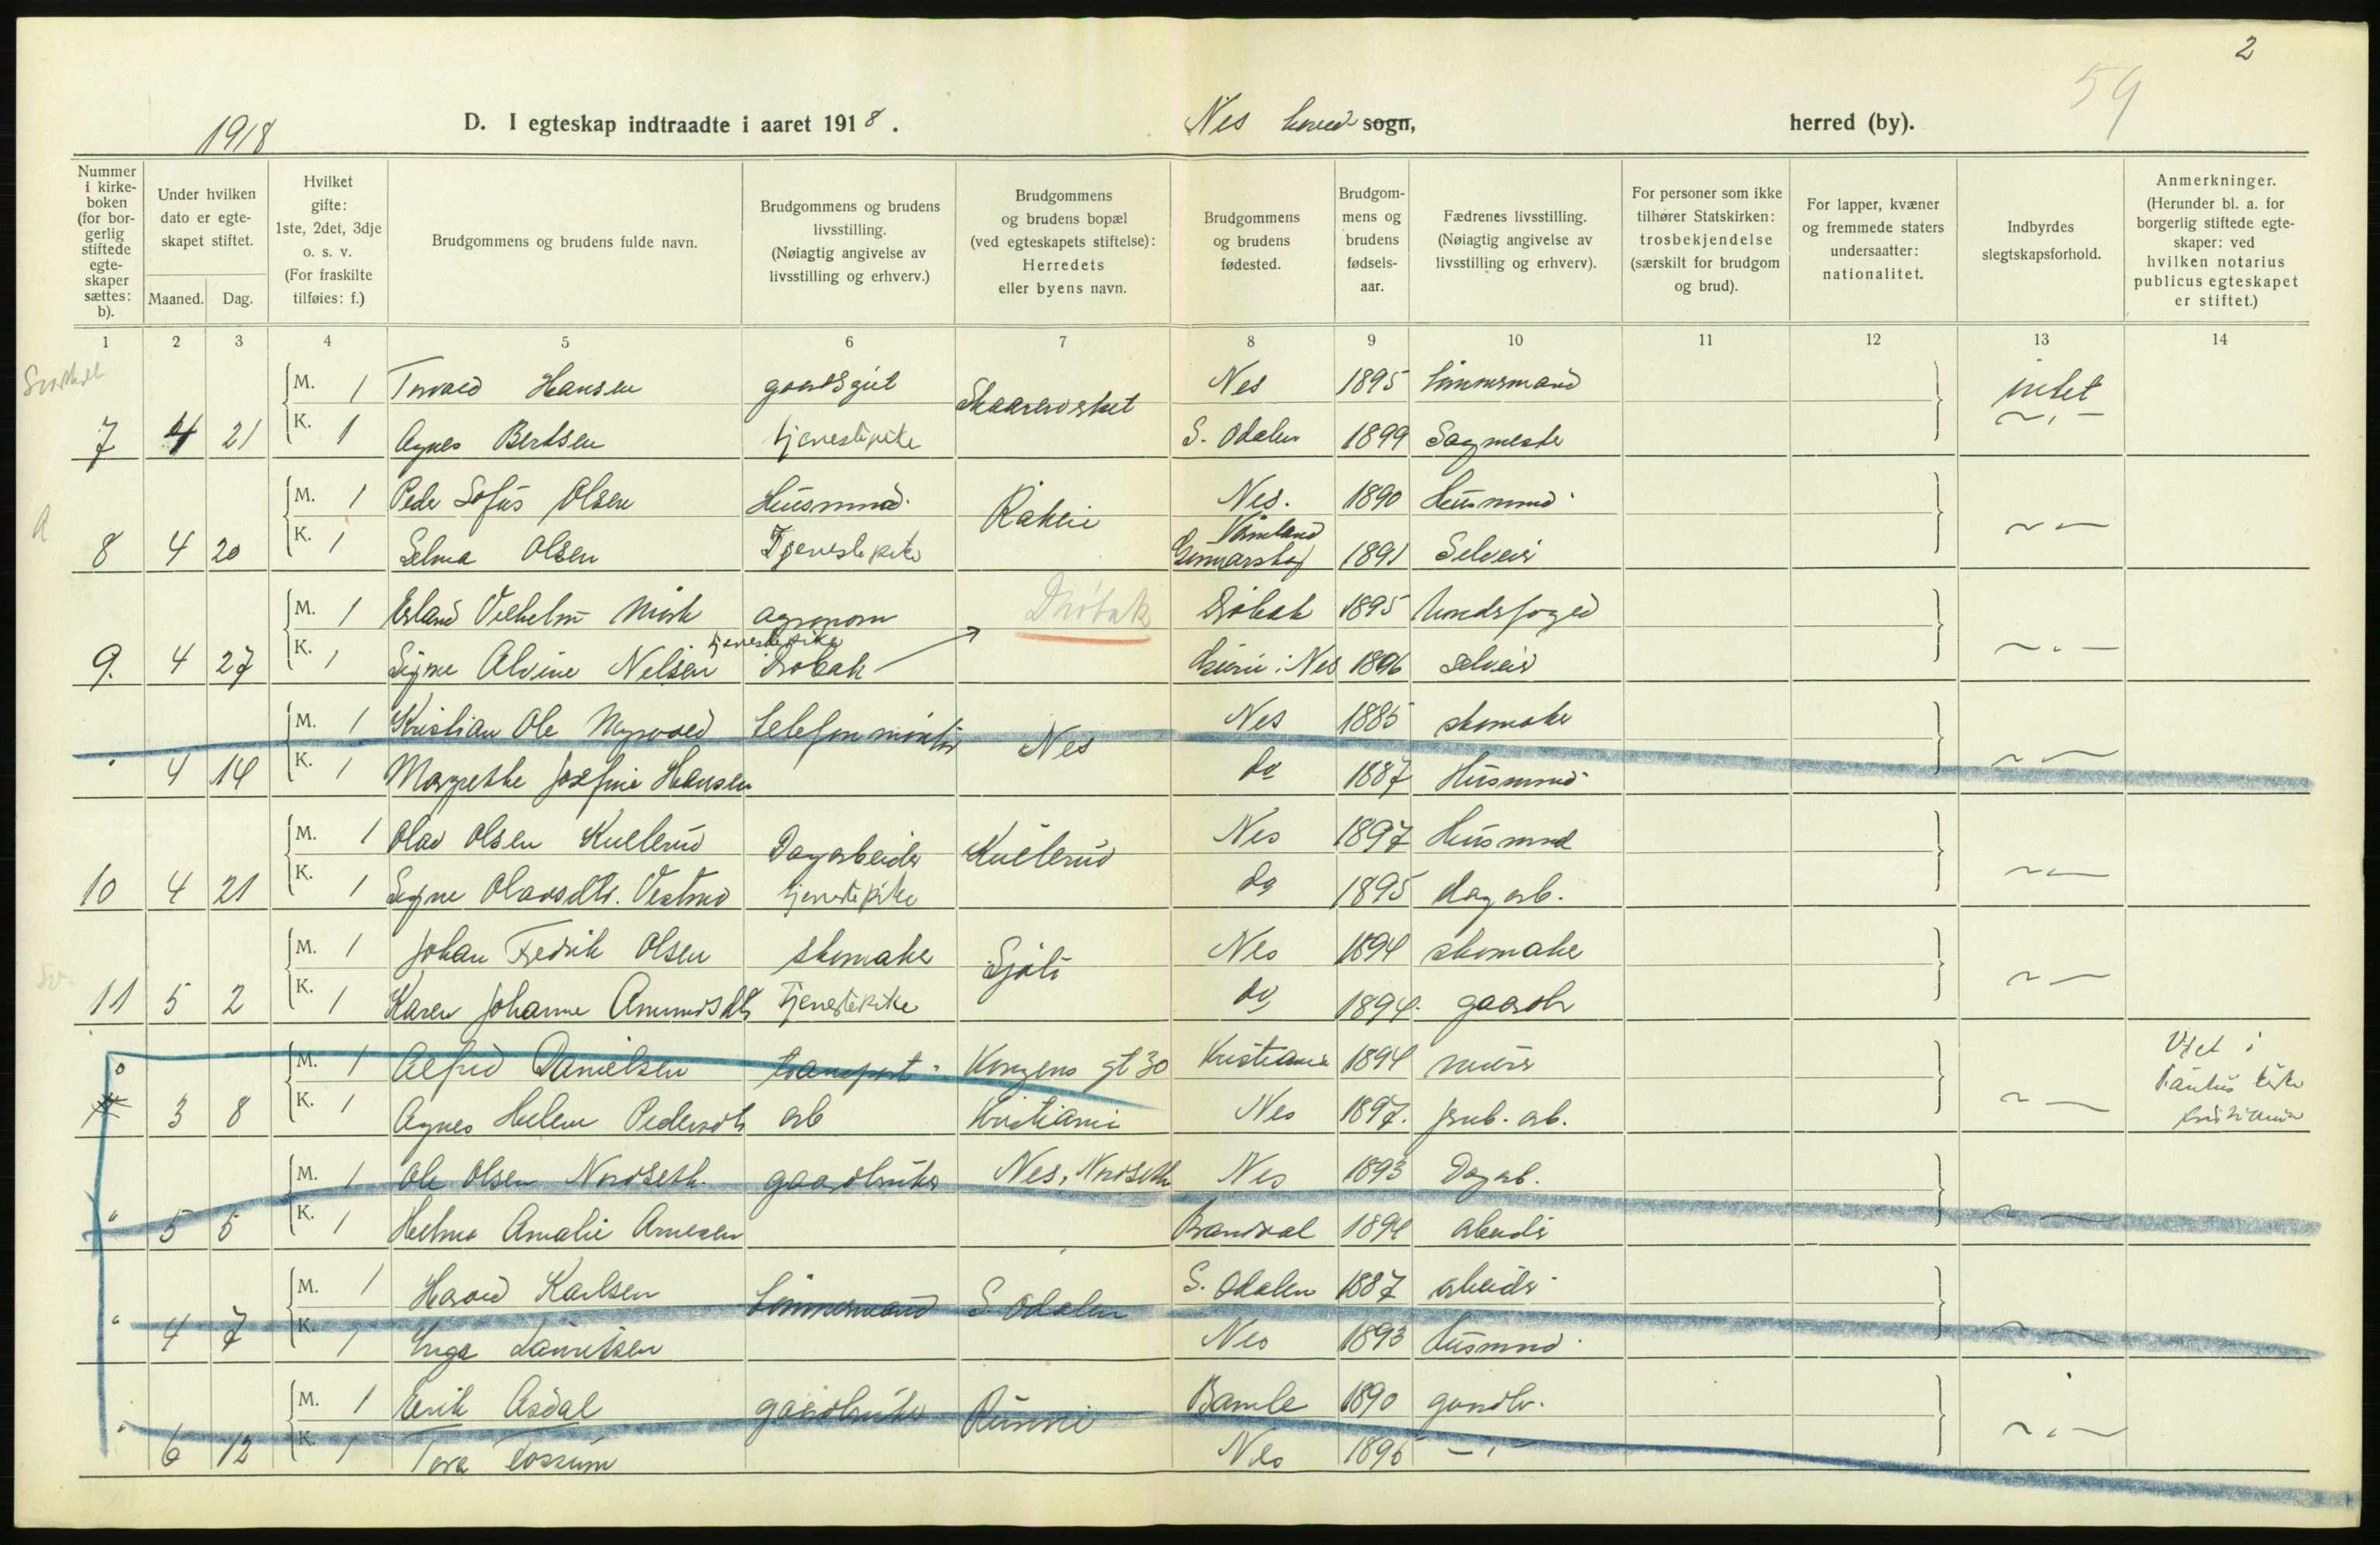 2
59
1918
D. I egteskap indtraadte i aaret 1918.
Nes hoved sogn,
herred (by).
Nummer i kirke-boken (for bor-gerlig stiftede egte-skaper sættes: b).
Under hvilken dato er egte-skapet stiftet.
Maaned. Dag.
Hvilket gifte: 1ste, 2det, 3dje o. s. v. (For fraskilte tilføies: f.)
Brudgommens og brudens fulde navn.
Brudgommens og brudens livsstilling. (Nøiagtig angivelse av livsstilling og erhverv.)
Brudgommens og brudens bopæl (ved egteskapets stiftelse): Herredets eller byens navn.
Brudgommens og brudens fødested.
Brudgom-mens og brudens fødsels-aar.
Fædrenes livsstilling. (Nøiagtig angivelse av livsstilling og erhverv).
For personer som ikke tilhører Statskirken: trosbekjendelse (særskilt for brudgom og brud).
For lapper, kvæner og fremmede staters undersaatter: nationalitet.
Indbyrdes slegtskapsforhold.
Anmerkninger. (Herunder bl. a. for borgerlig stiftede egte-skaper: ved hvilken notarius publicus egteskapet er stiftet.)
1 2 3 4 5 6 7 8 9 10 11 12 13 14
M. 1 Torvald Hansen Nes 1895 tømmermand intet
7 4 21 K. 1 Agnes Berdsen tjenestepike S. Odalen 1899 Sagmester
M. 1 Peder Sofus Olsen Husmand Rakeie Nes. 1890 Husmand
8 4 20 K. 1 Selma Olsen Tjenestepike Værmland Gunnarskog 1891 Selveier
M. 1 Erland Vilhelm Mørk agronom Drøbak Drøbak 1895 Underfoged
9. 4 27 K. 1 Signe Alvine Nelsen tjenestepike Drøbak Nes 1896 selveier
M. 1 Kristian Ole Myrvold telefonmontør Nes Nes 1885 skomaker
" 4 14 K. 1 Margrethe Josefine Hansen do 1887 Husmand
M. 1 Olav Olsen Kullerud Dagarbeider Kullerud Nes 1897 Husmand
10 4 21 K. 1 Signe Olavsdtr. tjenestepike do 1895 dagarb.
M. 1 Johan Fredrik Olsen skomaker Sjøli Nes 1894 skomaker
11 5 2 K. 1 Karen Johanne Amundsdtr Tjenestepike do 1894. gaardbr
M. 1 Alfred Danielsen transport- Kongens gt 30 Kristiania 1894 murer Viet i
3 8 K. 1 Agnes Helene Pedersdtr arb Kristiania Nes 1897. jernb. arb. Paulus kirke Kristiania
M. 1 Ole Olsen Nordseth gaardbruker Nes, Nordseth Nes 1893 Dagarb.
" 5 5 K. 1 Helma Amalie Arnesen Brandval 1894 arbeider
M. 1 Harald Karlsen tømmermand S. Odalen S. Odalen 1887 arbeider
" 4 7 K. 1 Inga Lauritsen Nes 1893 Husmand
M. 1 Erik Asdal gaardbruker Runni Bamle 1890 gaardbr.
" 6 12 K. 1 Tora Fossum Nes 1895 — " —